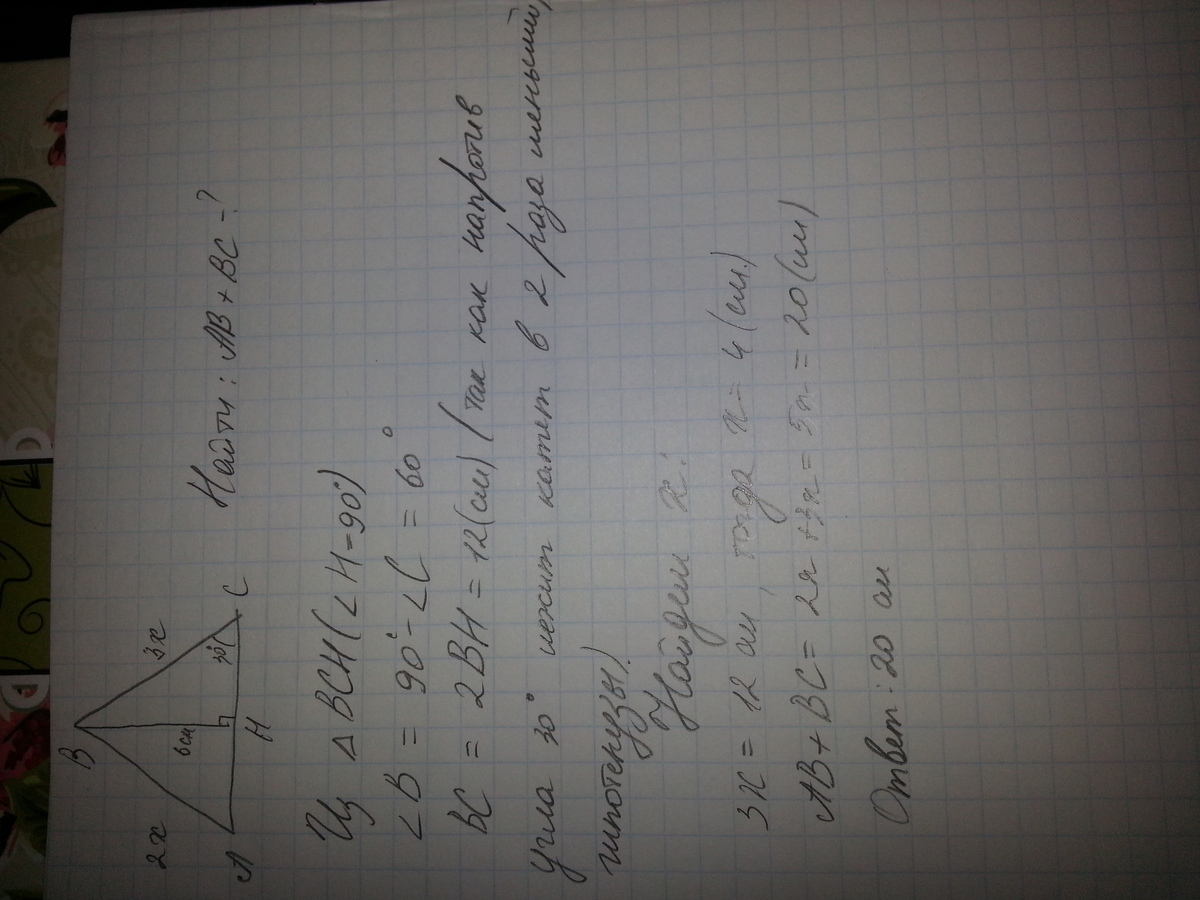 B
2x
3x
6см
30°
A
H
C
Найти: AB + BC -?
Из △ BCH (∠H=90°)
∠B = 90° - ∠C = 60°
BC = 2BH = 12(см) (так как напротив
угла 30° лежит катет в 2 раза меньший,
гипотенузы).
Найдем x:
3x = 12 см, тогда x = 4 (см.)
AB + BC = 2x + 3x = 5x = 20 (см)
Ответ: 20 см